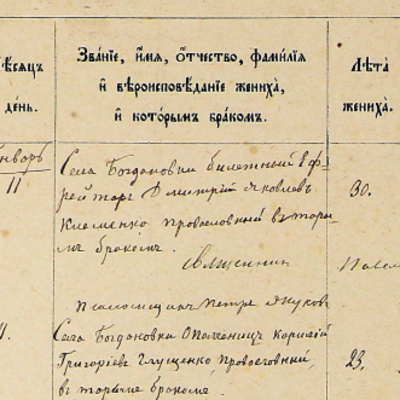 мѣсяцъ
и день.
Зва́нїе, и҆́мѧ, ѻ҆́тчество, фами́лїѧ
и҆ вѣроисповѣ́данїе жениха̀,
и҆ кото́рымъ бра́комъ.
Лѣ́та
жениха̀.
Январь
11
Села Богдановки билетный Еф
рейторъ Дмитрій Яковлев
Клеменко православный вторы
мъ бракомъ.
30.
Священник
Павел
псаломщик Петръ Януков
Села Богдановка
Григоріев Глущенко, православный,
вторымъ бракомъ.
23.